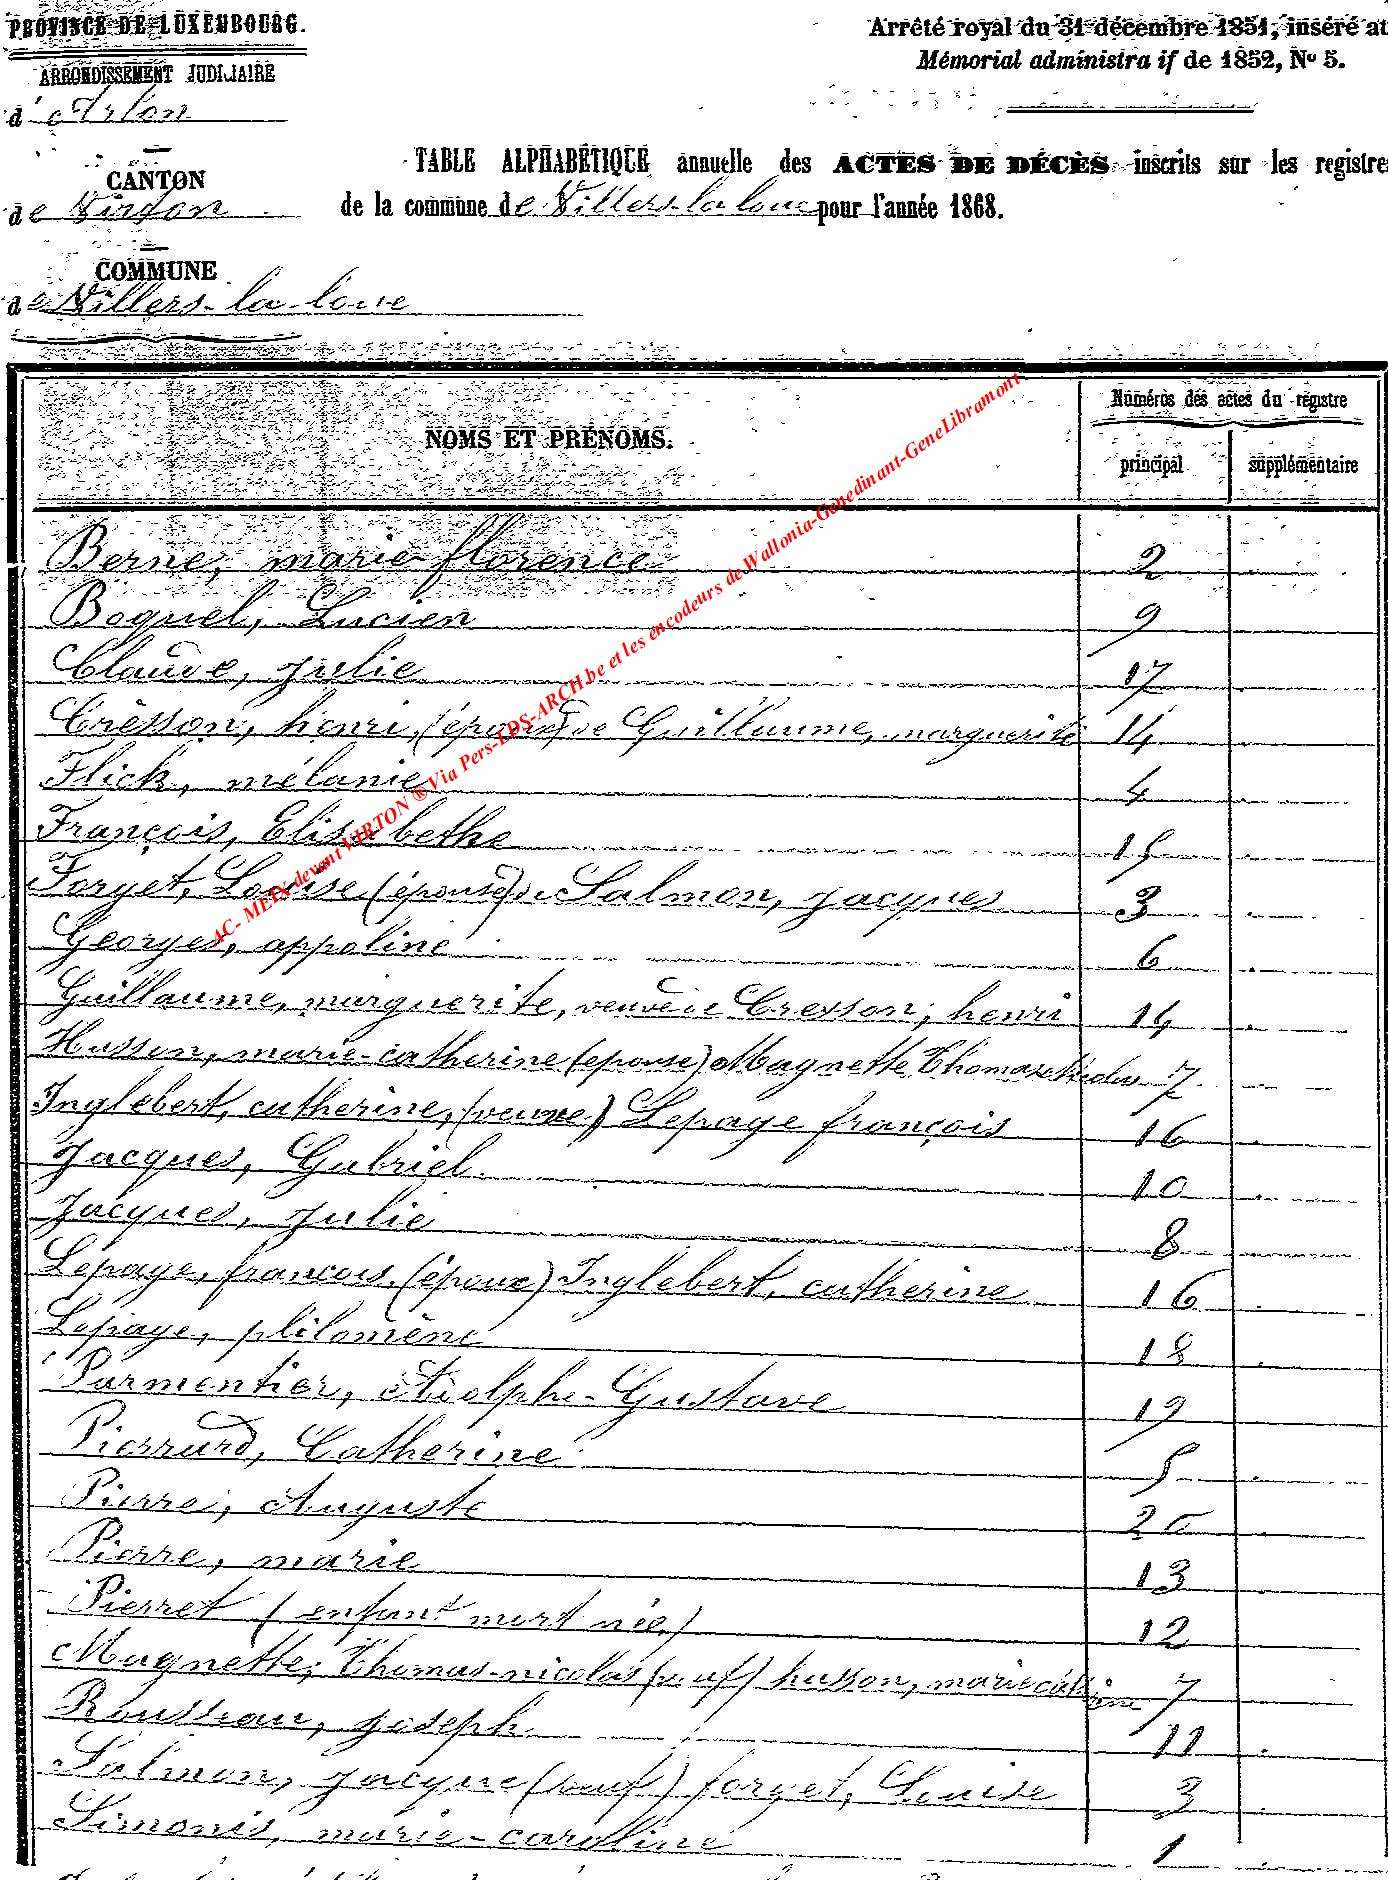 PROVINCE DE LUXEMBOURG.
ARRONDISSEMENT JUDICIAIRE
d'Arlon
CANTON
de Virton
COMMUNE
de Villers-la-loue
Arrêté royal du 31 décembre 1851, inséré au
Mémorial administra if de 1852, No 5.
TABLE ALPHABÉTIQUE annuelle des ACTES DE DÉCÈS inscrits sur les registre
de la commune de Villers-la-loue pour l'année 1868.
NOMS ET PRÉNOMS.
Numéros des actes du registre
principal
supplémentaire
AC- MEIX-devant VIRTON ® Via Pers-LDS-ARCH.be et les encodeurs de Wallonia-Genedinant-GeneLibramont
Berne, marie florence 2
Boquel, Lucien 9
Claude, julie 17
Cresson, henri, (époux) de Guillaume, marguerite 14
Flick, mélanie 4
François, Elisabethe 15
Forget, Louise (épouse) de Salmon, jacques 3
Georges, appoline 6
Guillaume, marguerite, veuve de Cresson, henri 14
Husson, marie-catherine (epouse) Magnette Thomas 7
Inglebert, catherine, (veuve) Lepage françois 16
Jacques, Gabriel. 10
Jacques, julie 8
Lepage, francois, (époux) Inglebert, catherine 16
Lepage, philomène 18
Parmentier, Adolphe-Gustave 19
Pierrard, Catherine 5
Pierre, Auguste 20
Pierre, marie 13
Pierret (enfant mort née) 12
Magnette, Thomas-nicolas (veuf) husson, marie catherine 7
Rousseau, joseph 11
Salmon, jacque (veuf) forget, Louise 3
Simonis, marie-caroline 1